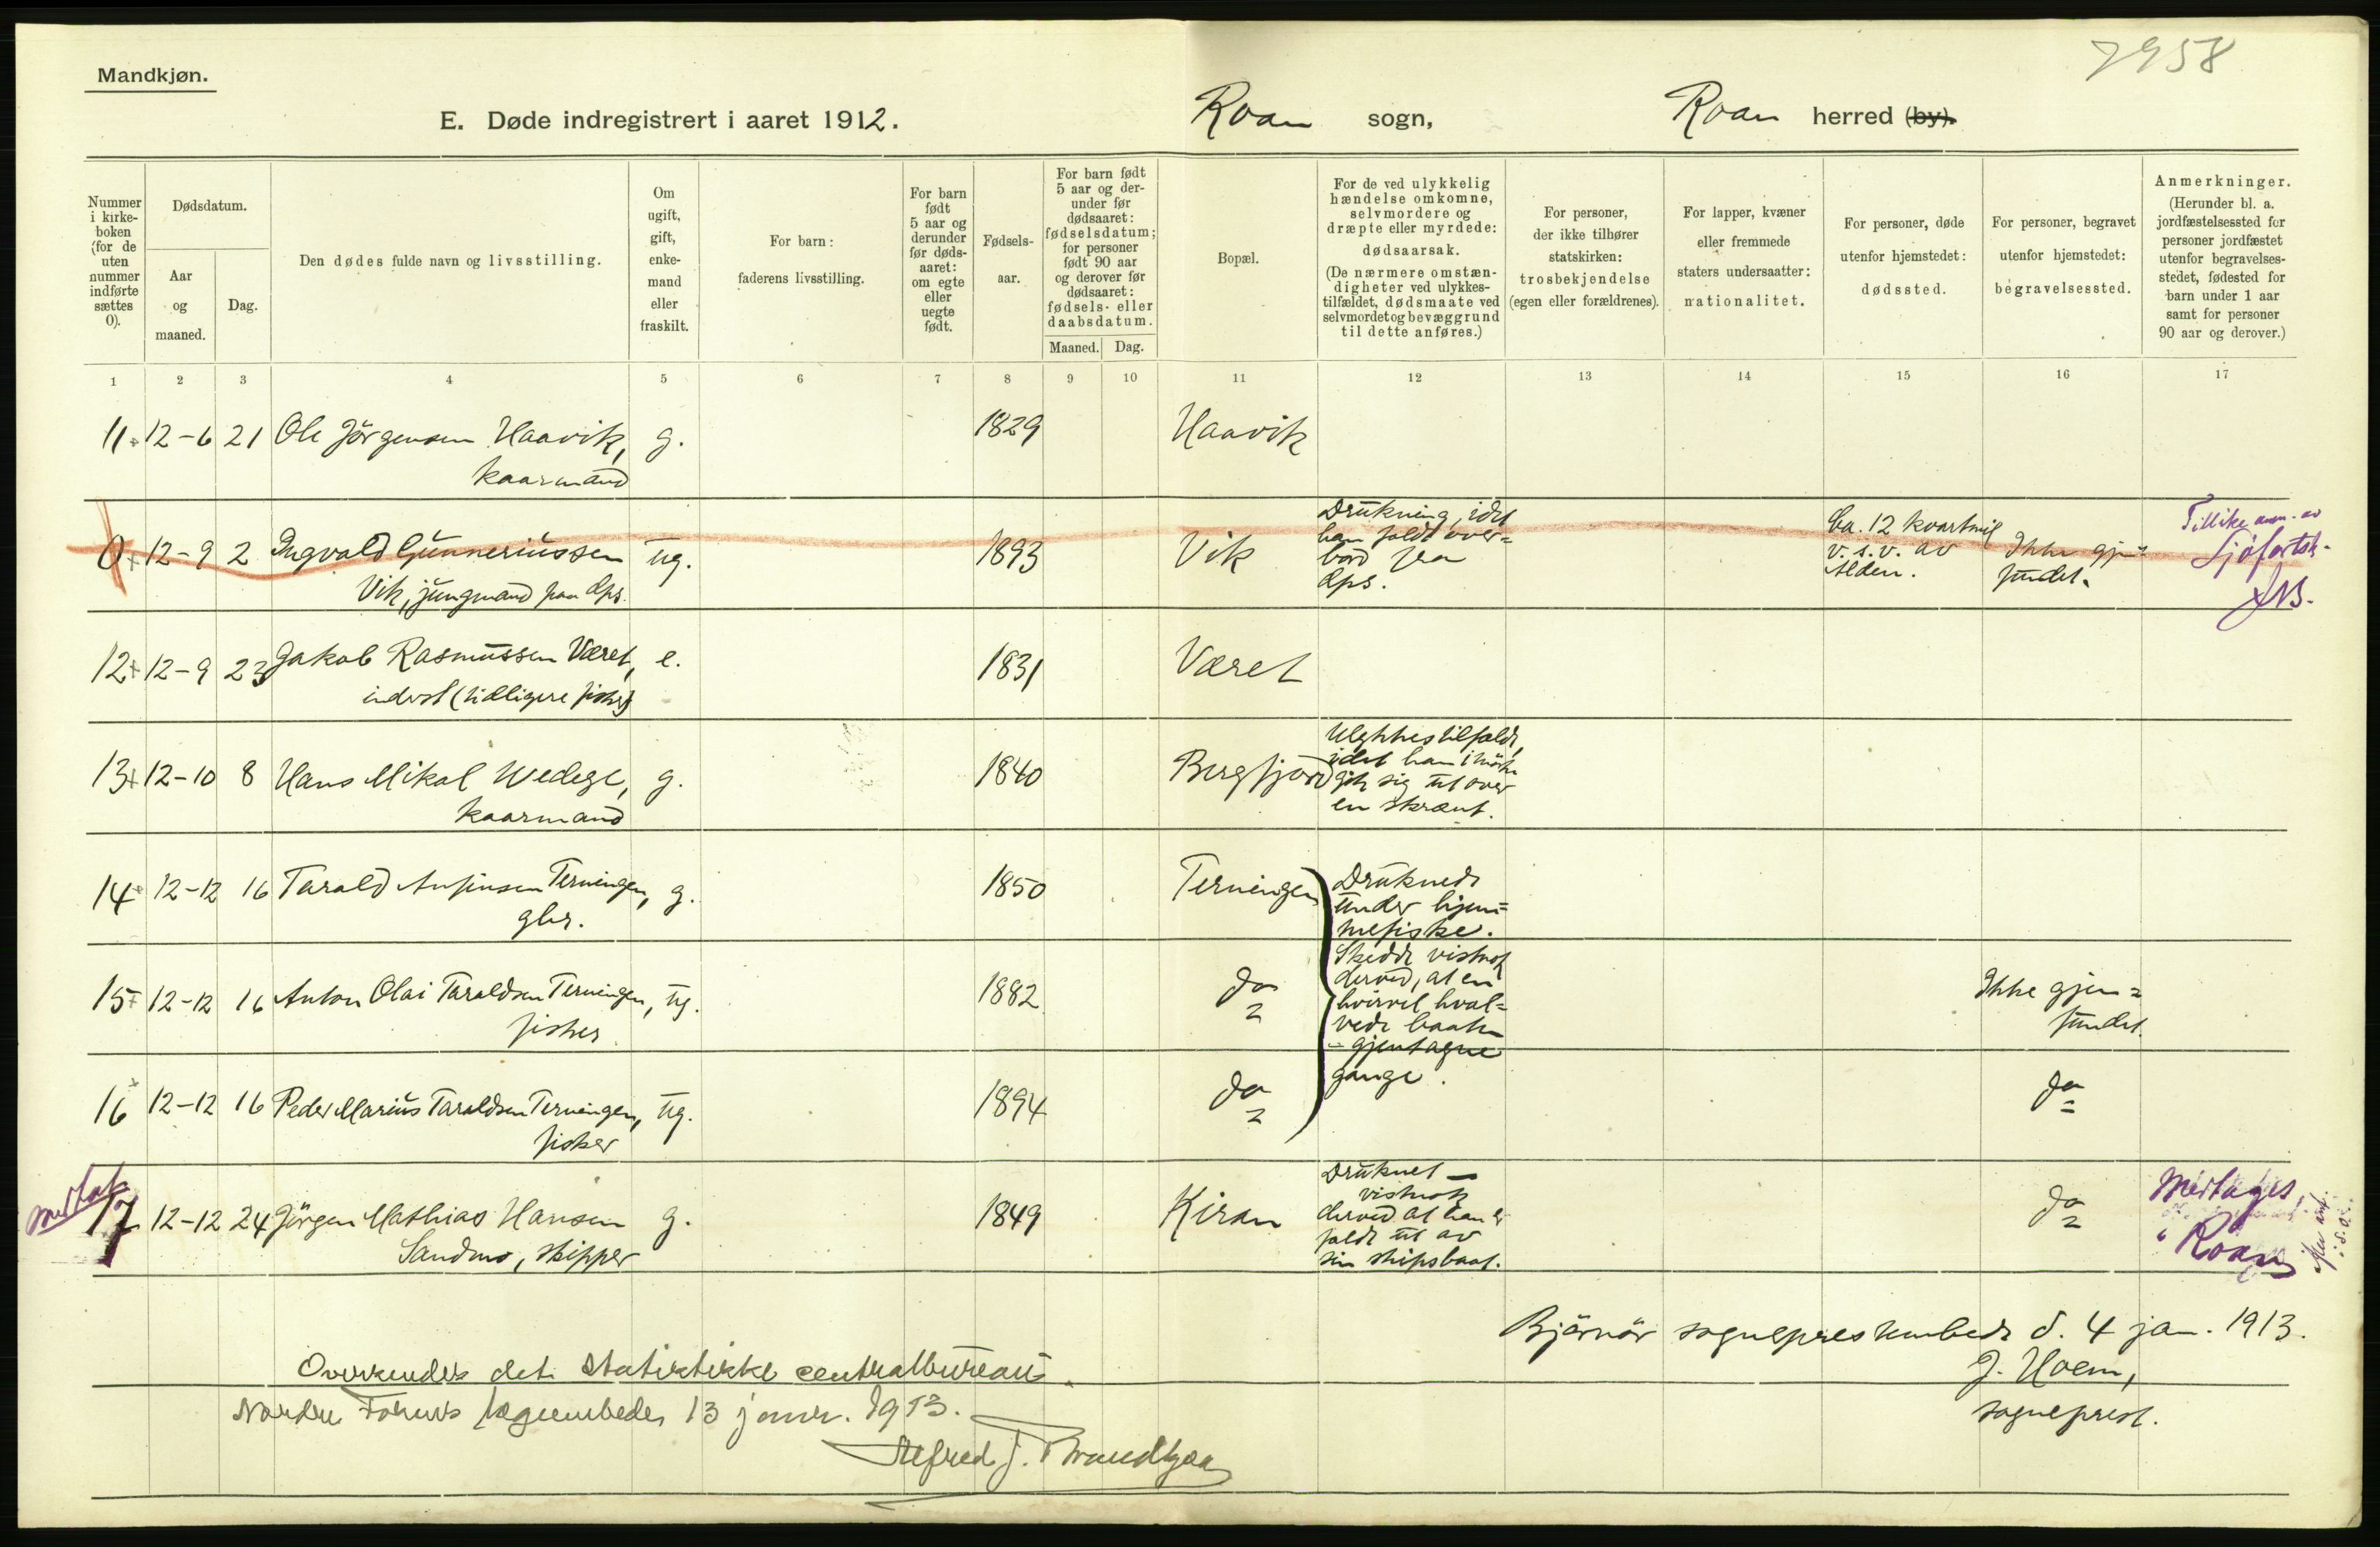 7958
Mandkjøn.
E. Døde indregistrert i aaret 1912.
Roan sogn,
Roan herred (by).
Nummer i kirke- boken (for de uten nummer indførte sættes 0).
Dødsdatum.
Aar og maaned.
Dag.
Den dødes fulde navn og livsstilling.
Om ugift, gift, enke- mand eller fraskilt.
For barn: faderens livsstilling.
For barn født 5 aar og derunder før døds- aaret: om egte eller uegte født.
Fødsels- aar.
For barn født 5 aar og der- under før dødsaaret: fødselsdatum; for personer født 90 aar og derover før dødsaaret: fødsels- eller daabsdatum.
Maaned.
Dag.
Bopæl.
For de ved ulykkelig hændelse omkomne, selvmordere og dræpte eller myrdede: dødsaarsak. (De nærmere omstæn- digheter ved ulykkes- tilfældet, dødsmaate ved selvmordet og bevæggrund til dette anføres.)
For personer, der ikke tilhører statskirken: trosbekjendelse (egen eller forældrenes).
For lapper, kvæner eller fremmede staters undersaatter: nationalitet.
For personer, døde utenfor hjemstedet: dødssted.
For personer, begravet utenfor hjemstedet: begravelsessted.
Anmerkninger. (Herunder bl. a. jordfæstelsessted for personer jordfæstet utenfor begravelses- stedet, fødested for barn under 1 aar samt for personer 90 aar og derover.)
1 2 3 4 5 6 7 8 9 10 11 12 13 14 15 16 17
11 12-6 21 Ole Jörgensen Haavik, g. 1829 Haavik
kaarmand
0 12-9 2 Ingvald Gunneriussen ug. 1893 Vik
Vik, jungmand paa Dps.
Drukning, idet
han faldt over=
bord fra
Dps.
Ca. 12 kvartmil
v.s.v. av
Alden.
Ikke gjen=
fundet.
Tillike anm. av
Sjøfartsk.
12 12-9 23 Jakob Rasmussen Været, e. 1831 Været
inderst (tidligere fisker)
13 12-10 8 Hans Mikal Wedege, g. 1840 Bergfjord
kaarmand
Ulykkestilfælde,
idet han i mörke
gik sig ut over
en skrænt.
14 12-12 16 Tarald Anfinsen Terningen, g. 1850 Terningen
gbr.
Druknede
under hjem=
mefiske.
Skedde vistnok
derved, at en
hvirvel hval=
vede baaten
gjentagne
gange.
15 12-12 16 Anton Olai Taraldsen Terningen, ug. 1882 do
fisker
Ikke gjen=
fundet.
16 12-12 16 Peder Marius Taraldsen Terningen, ug. 1894 do do
fisker
medtat
17 12-12 24 Jörgen Mathias Hansen g. 1849 Kiran do
Sandmo, skipper
Druknet —
vistnok
derved at han er
faldt ut av
sin skipsbaat.
Medtages,
Roan
Björnör sogneprestembede d. 4 jan. 1913.
J. Hoem,
sogneprest.
Oversendes det statistiske centralbureau.
Nordre Fosens lægeembede 13 januar. 1913.
Alfred J.